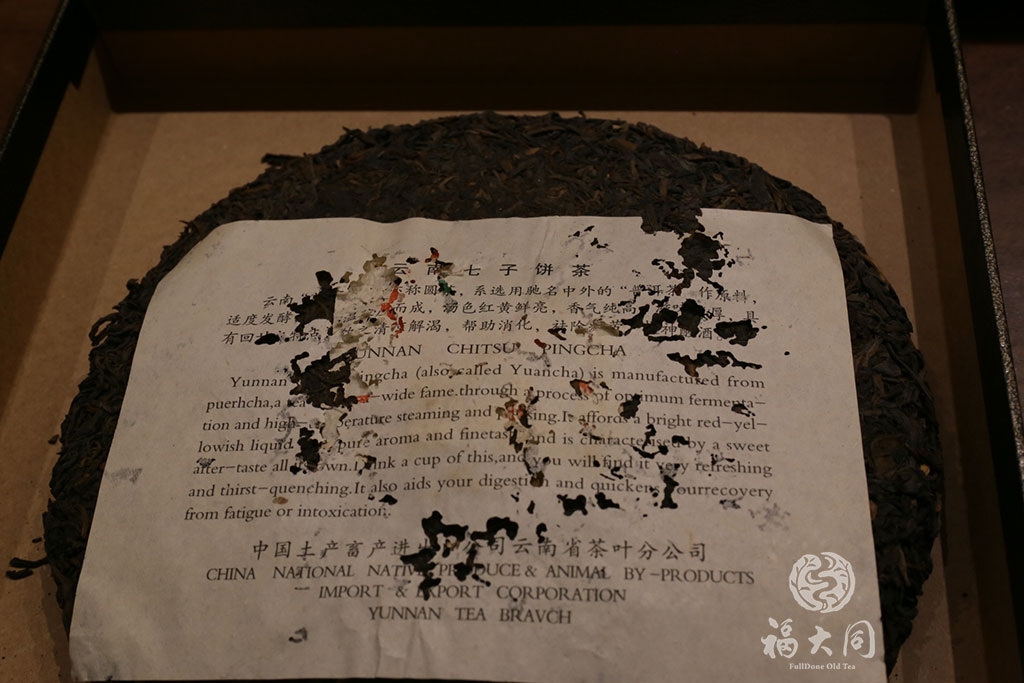 云南七子饼茶
云南 称圆 ，系选用驰名中外的“普洱茶”作原料，
适度发酵 而成，汤色红黄鲜亮，香气纯高 厚，具
有回 之清 解渴，帮助消化，祛除 神 酒
YUNNAN CHITSU PINGCHA
Yunnan (also called Yuancha) is manufactured from
puerhcha,a tea wide fame.through a process of optimum fermenta-
tion and high- steaming and It affords a bright red-yel-
lowish liquid pure aroma and and is characterised by a sweet
after-taste all a cup of this,and you will find it very refreshing
and thirst-quenching.It also aids your digestion and quickens yourrecovery
from fatigue or intoxication.
中国土产畜产进出 公司云南省茶叶分公司
CHINA NATIONAL NATIVE PRODUCE & ANIMAL BY-PRODUCTS
IMPORT & EXPORT CORPORATION
YUNNAN TEA BRAVCH
福大同
FullDone Old Tea